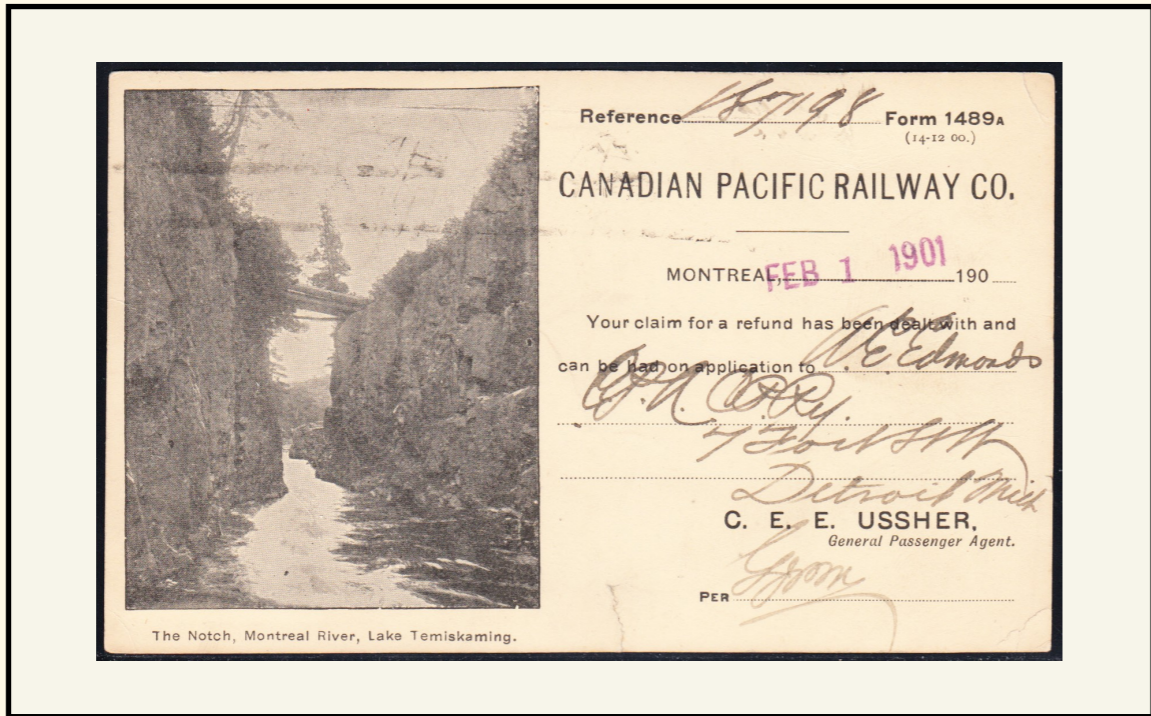 Reference 187198 Form 1489A
(14-12 00.)
CANADIAN PACIFIC RAILWAY CO.
MONTREAL, FEB 1 1901 190
Your claim for a refund has been dealt with and
can be had on application to A. E. Edmonds
C.P.Ry.
7 Fort St W
Detroit Mich
C. E. E. USSHER,
General Passenger Agent.
PER
The Notch, Montreal River, Lake Temiskaming.